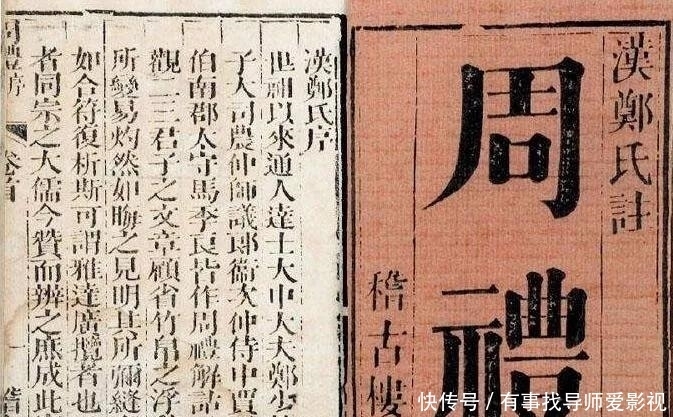 漢鄭氏註
周禮
稽古樓
漢鄭氏序
世祖以來通人達士大中大夫鄭少
子大司農仲師議郎衛次仲侍中賈
伯南郡太守馬季良皆作周禮解詁
觀二三君子之文章顧省竹帛之浮
所變易灼然如晦之見明其所彌縫
如合符復析斯可謂雅達廣攬者也
者同宗之大儒今贊而辨之庶成此
周禮序 卷首 一
快传号／有事找导师爱影视